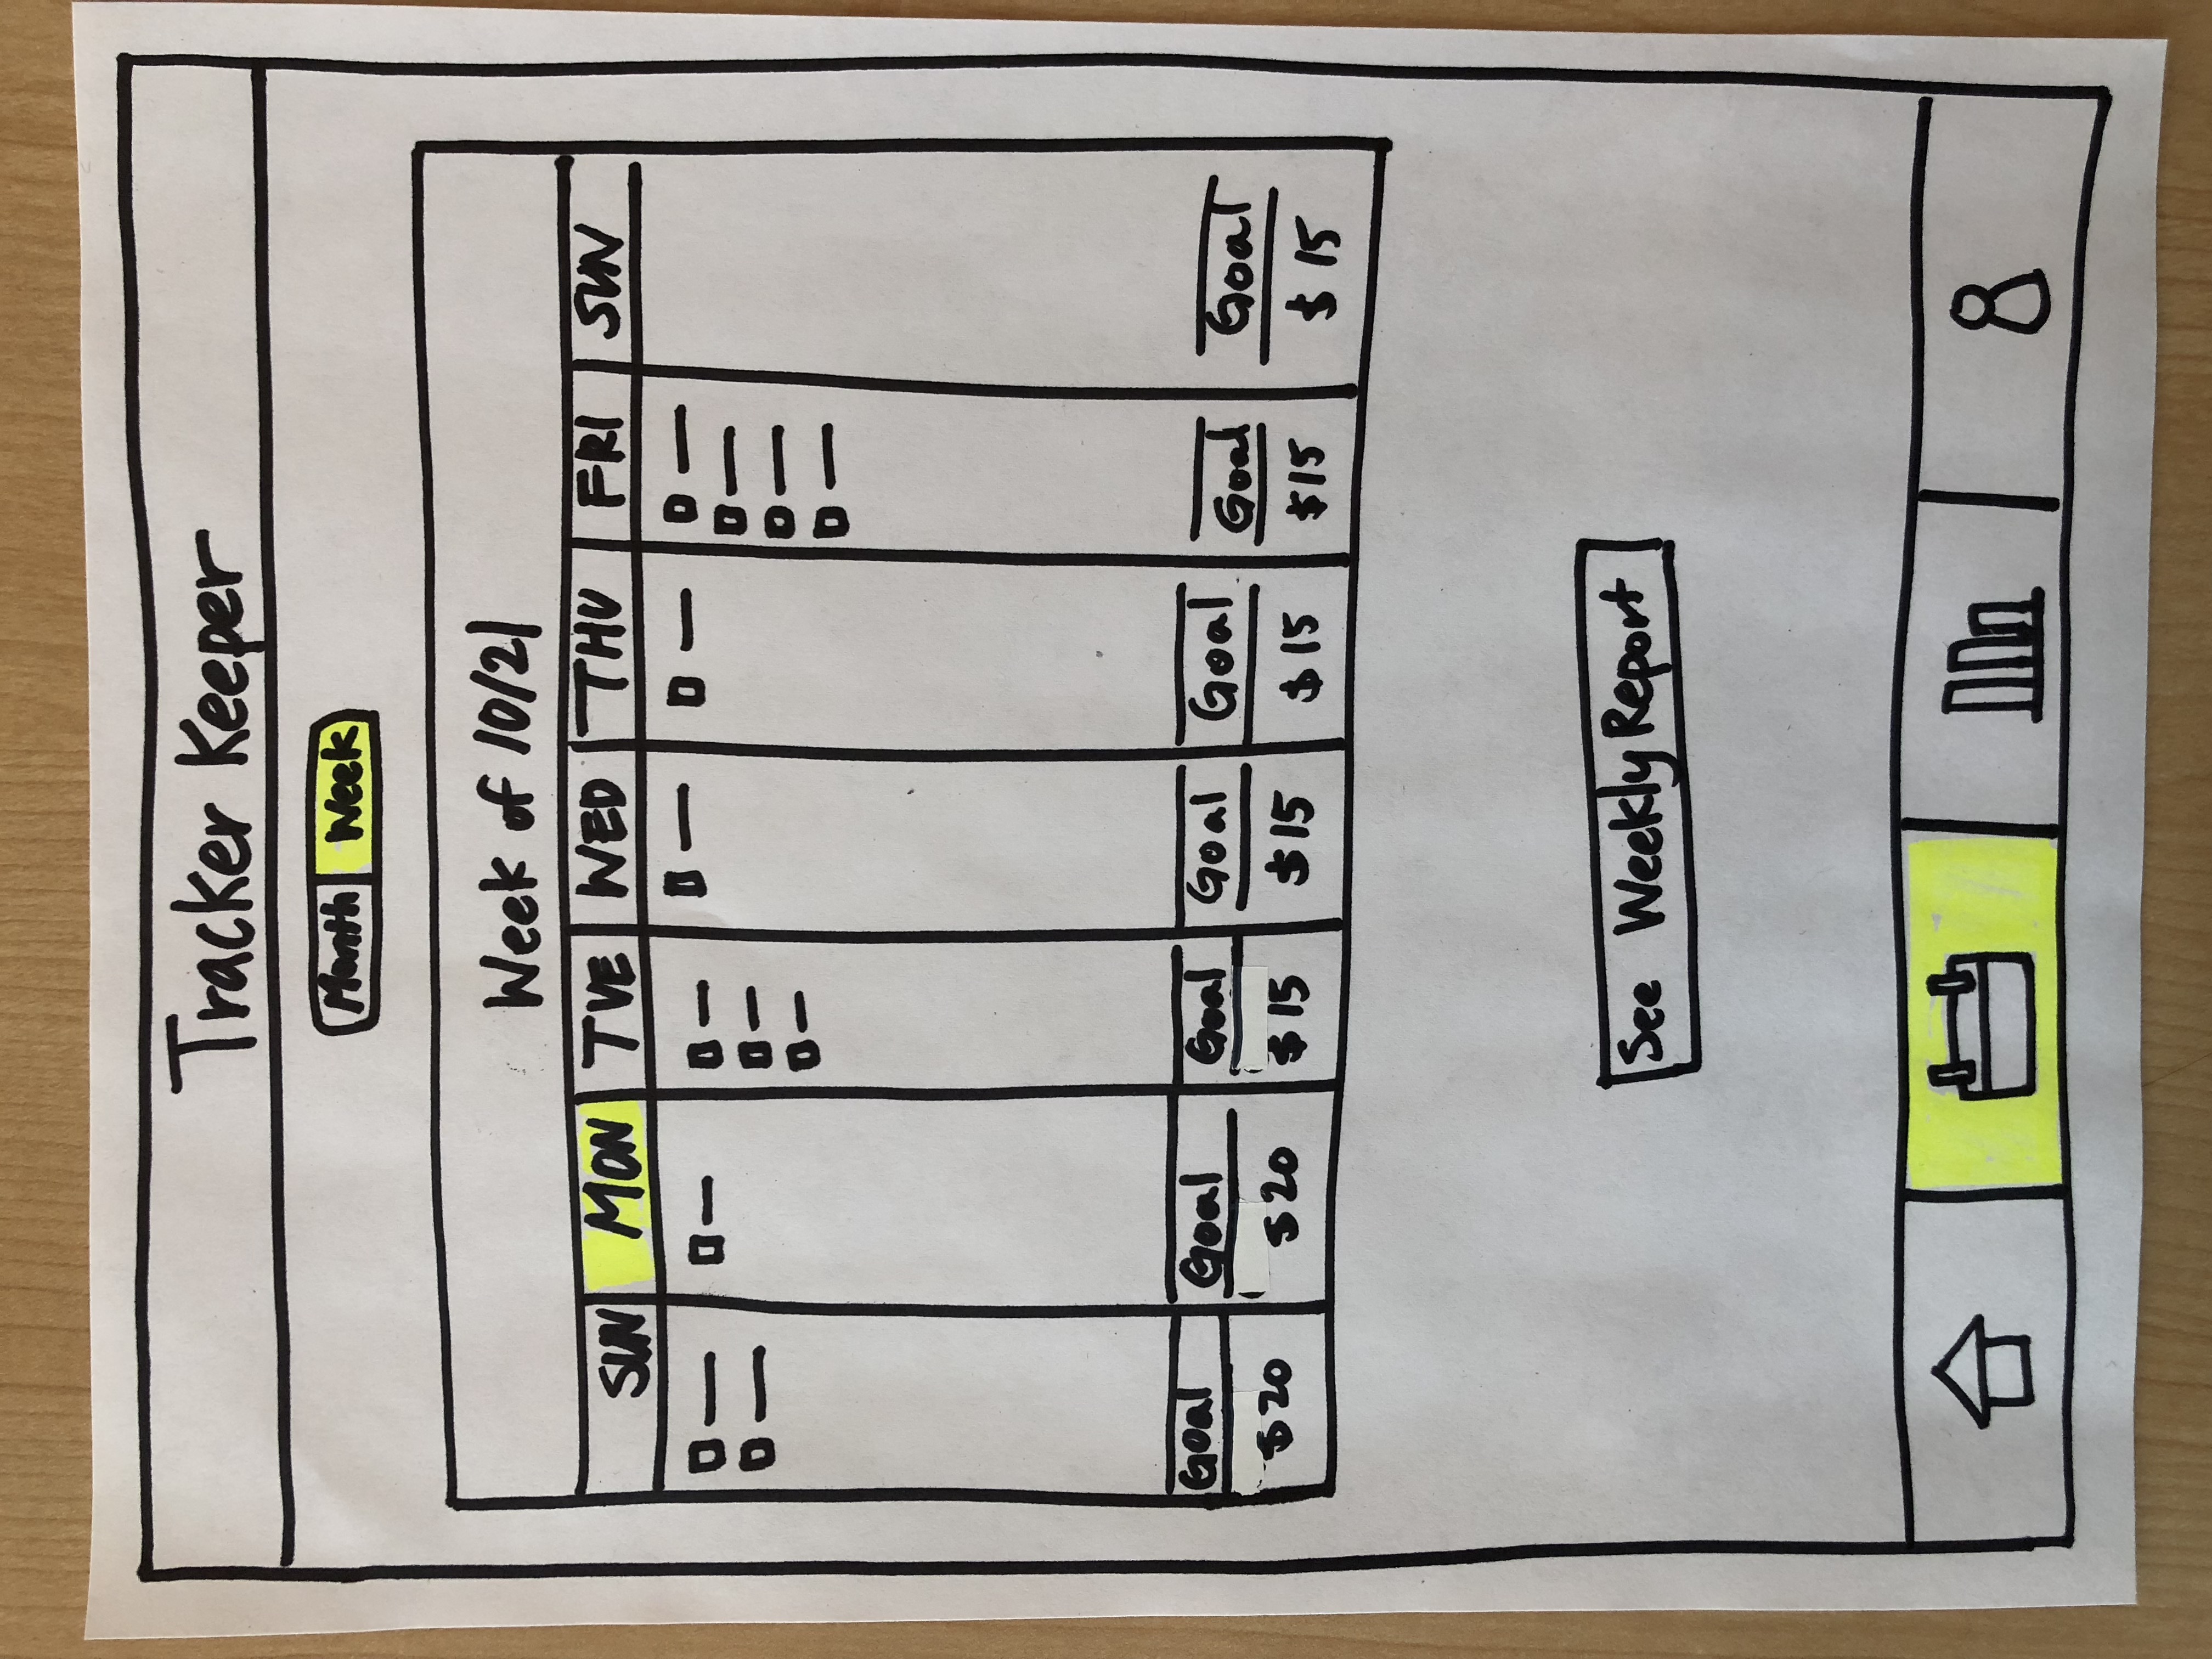 Tracker Keeper
Month Week
Week of 10/21
SUN MON TUE WED THU FRI SUN
Goal Goal Goal Goal Goal Goal Goal
$20 $20 $15 $15 $15 $15 $15
See Weekly Report